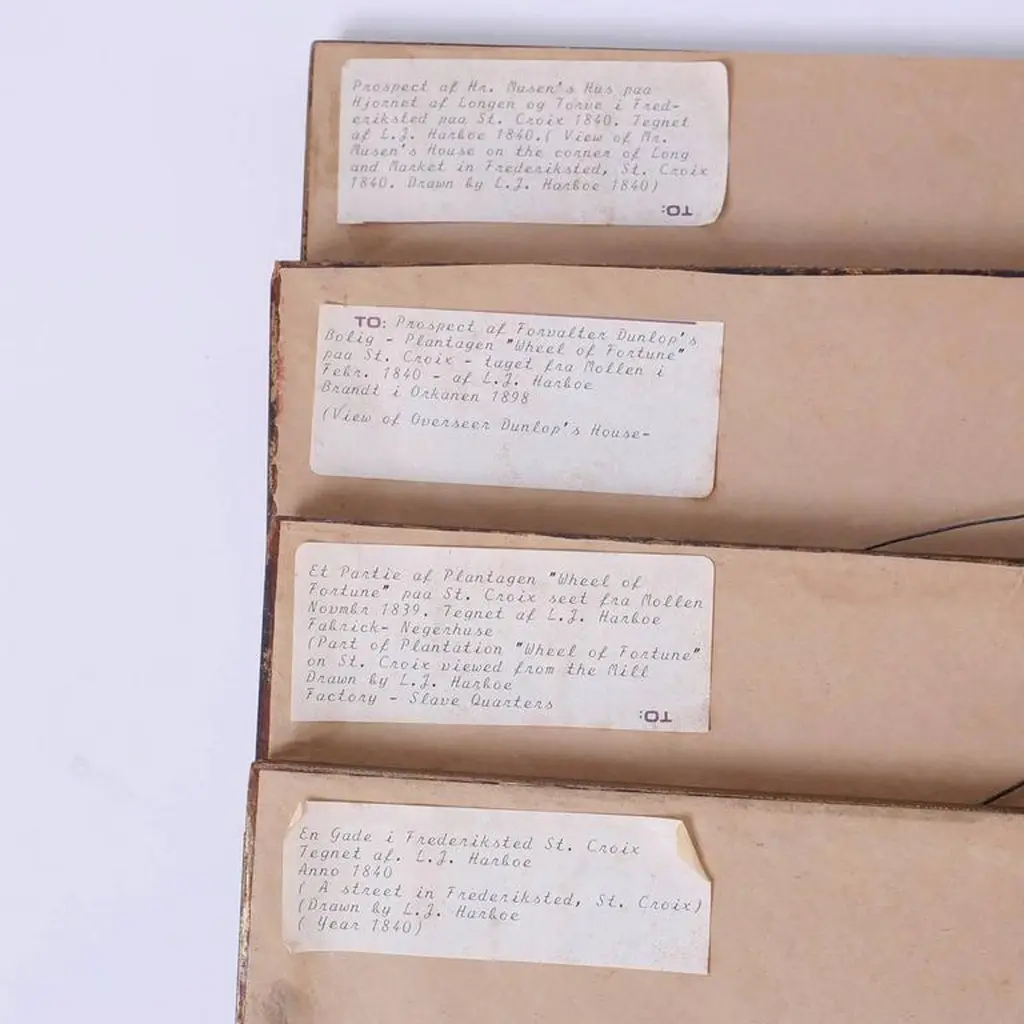 Prospect af Hr. Musen's Hus paa
Hjornet af Longen og Torve i Fred-
eriksted paa St. Croix 1840. Tegnet
af L.J. Harboe 1840.( View of Mr.
Musen's House on the corner of Long
and Market in Frederiksted, St. Croix
1840. Drawn by L.J. Harboe 1840)
TO:
TO: Prospect af Forvalter Dunlop's
Bolig - Plantagen "Wheel of Fortune"
paa St. Croix - taget fra Mollen i
Febr. 1840 - af L.J. Harboe
Brandt i Orkanen 1898
(View of Overseer Dunlop's House-
Et Partie af Plantagen "Wheel of
Fortune" paa St. Croix seet fra Mollen
Novmbr 1839. Tegnet af L.J. Harboe
Fabrick- Negerhuse
(Part of Plantation "Wheel of Fortune"
on St. Croix viewed from the Mill
Drawn by L.J. Harboe
Factory - Slave Quarters
TO:
En Gade i Frederiksted St. Croix
Tegnet af. L.J. Harboe
Anno 1840
( A street in Frederiksted, St. Croix)
(Drawn by L.J. Harboe
( Year 1840)